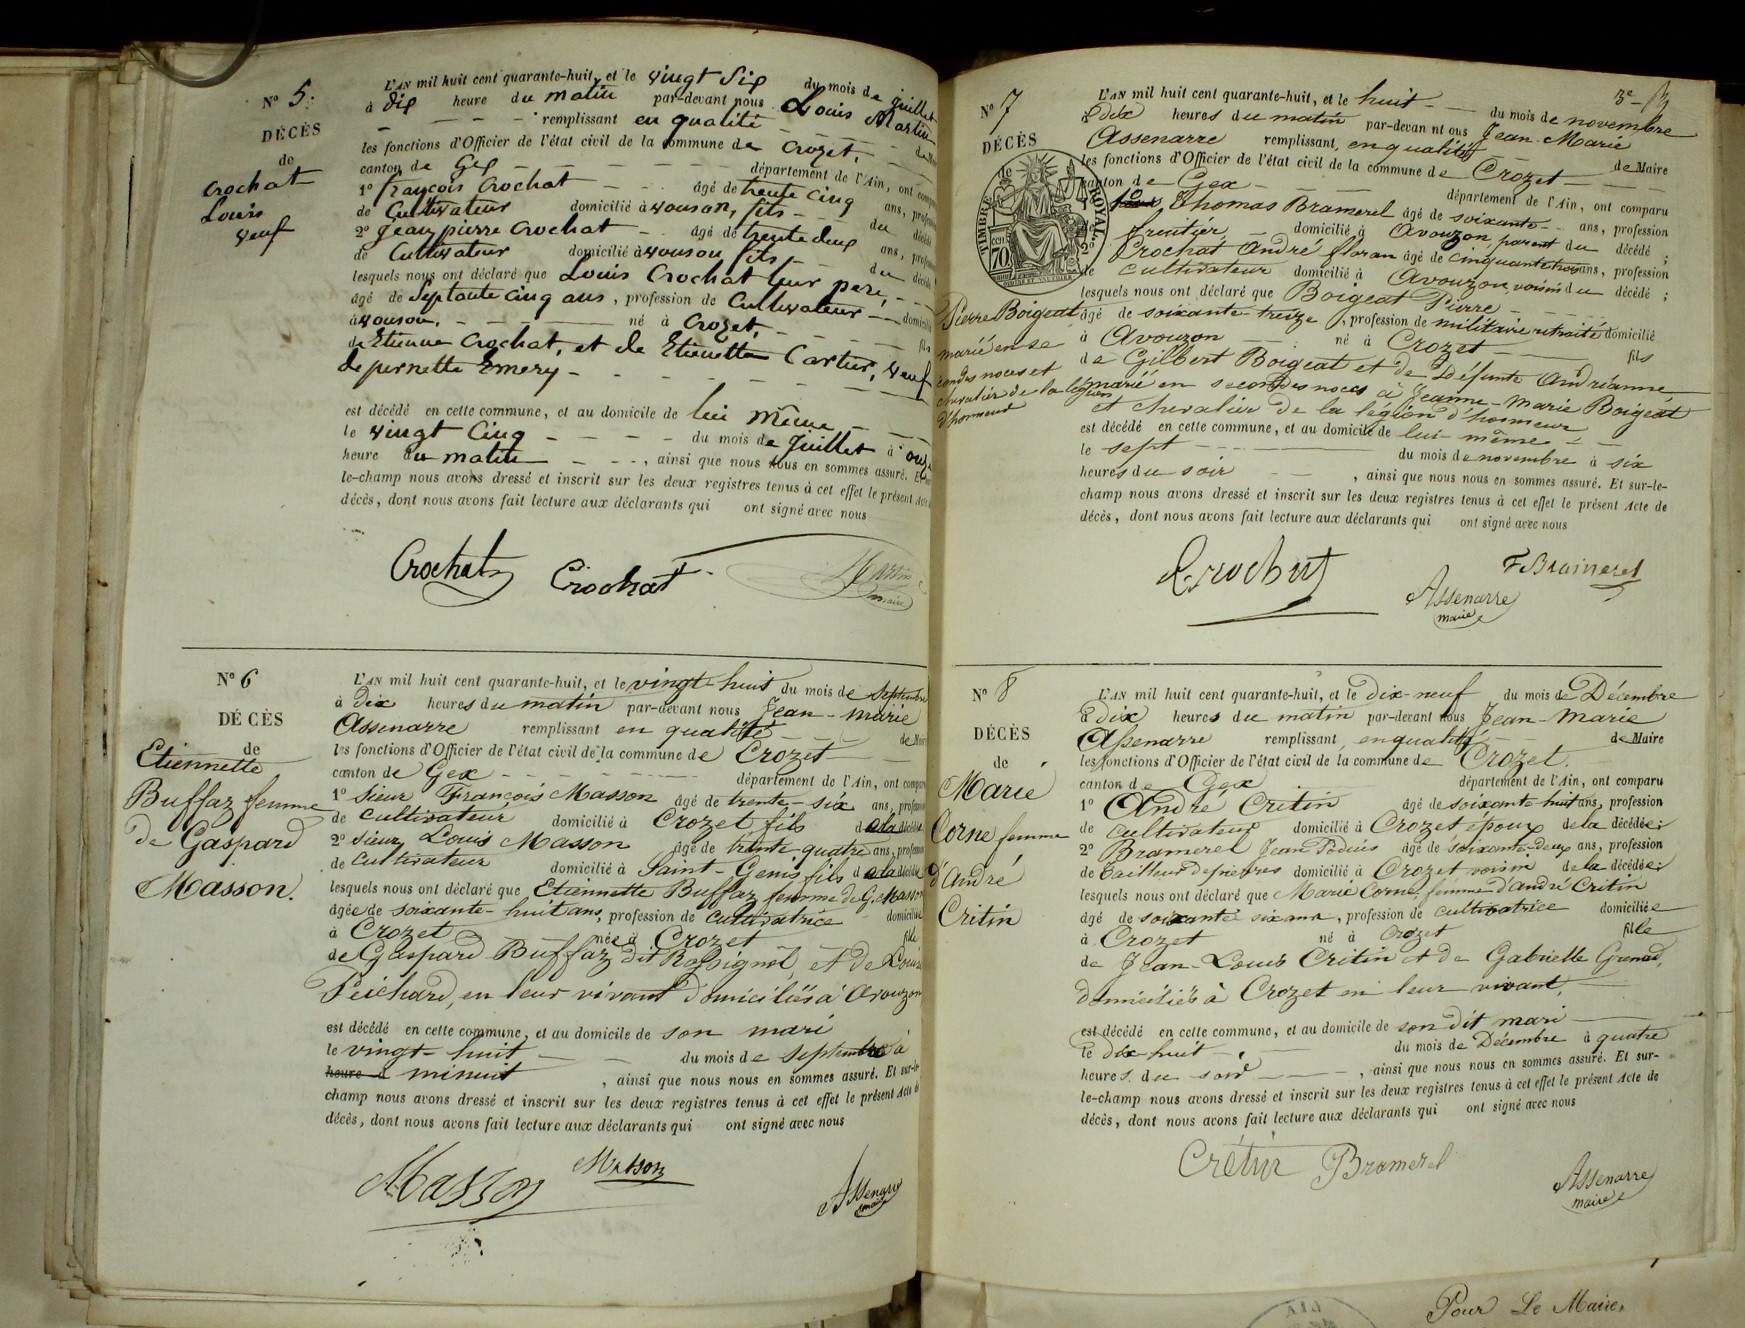 N° 5.
DÉCÈS
de
Crochat
Louis
veuf
L'AN mil huit cent quarante-huit, et le vingt Six du mois de juillet
à dix heure du matin par-devant nous Louis Martin
remplissant en qualité de Maire
les fonctions d'Officier de l'état civil de la commune de Crozet,
canton de Gex département de l'Ain, ont comparu
1° françois Crochat âgé de trente cinq ans, profession
de Cultivateur domicilié à avouson, fils du décédé
2° jean pierre Crochat âgé de trente deux ans, profession
de Cultivateur domicilié à avouson fils du décédé
lesquels nous ont déclaré que Louis Crochat leur pere,
âgé de Septante cinq ans, profession de Cultivateur domicilié
à avouson, né à Crozet, fils
de Etienne Crochat, et de Etiennette Cartier, veuf
de pernette Emery
est décédé en cette commune, et au domicile de lui même
le vingt Cinq du mois de juillet à onze
heure du matin, ainsi que nous nous en sommes assuré. Et sur-
le-champ nous avons dressé et inscrit sur les deux registres tenus à cet effet le présent Acte de
décès, dont nous avons fait lecture aux déclarants qui ont signé avec nous
Crochat Crochat Martin
maire
N° 6
DÉCÈS
de
Etiennette
Buffaz femme
de Gaspard
Masson.
L'AN mil huit cent quarante-huit, et le vingt-huit du mois de Septembre
à Dix heures du matin par-devant nous Jean-Marie
Assenarre remplissant en qualité de Maire
les fonctions d'Officier de l'état civil de la commune de Crozet
canton de Gex département de l'Ain, ont comparu
1° Sieur François Masson âgé de trente-six ans, profession
de cultivateur domicilié à Crozet fils de la décédée
2° sieur Louis Masson âgé de trente quatre ans, profession
de cultivateur domicilié à Saint-Genis fils de la décédée
lesquels nous ont déclaré que Etiennette Buffaz femme de G. Masson
âgée de soixante-huit ans, profession de cultivatrice domiciliée
à Crozet née à Crozet fille
de Gaspard Buffaz dit Rossignol, et de Louise
Peichard, en leur vivant domiciliés à Avouzon
est décédé en cette commune, et au domicile de son mari
le vingt-huit du mois de septembre à
heure à minuit, ainsi que nous nous en sommes assuré. Et sur-le-
champ nous avons dressé et inscrit sur les deux registres tenus à cet effet le présent Acte de
décès, dont nous avons fait lecture aux déclarants qui ont signé avec nous
Masson Masson Assenarre
maire
3e
N° 7
DÉCÈS
de
TIMBRE ROYAL
70
Pierre Boigeat
marié en se
condes noces et
chevalier de la légion
d'honneur
L'AN mil huit cent quarante-huit, et le huit du mois de novembre
à dix heures du matin par-devant nous Jean-Marie
Assenarre remplissant en qualité de Maire
les fonctions d'Officier de l'état civil de la commune de Crozet
canton de Gex département de l'Ain, ont comparu
1° Thomas Bramerel âgé de soixante ans, profession
fruitier domicilié à Avouzon, parent du décédé;
2° Crochat André floran âgé de cinquante trois ans, profession
de cultivateur domicilié à Avouzon, voisin du décédé;
lesquels nous ont déclaré que Boigeat Pierre
âgé de soixante treize, profession de militaire retraité domicilié
à Avouzon né à Crozet fils
de Gilbert Boigeat et de Défunte Andréanne
marié en secondes noces à Jeanne-Marie Boigeat
et chevalier de la légion d'honneur
est décédé en cette commune, et au domicile de lui-même
le sept du mois de novembre à six
heures du soir, ainsi que nous nous en sommes assuré. Et sur-le-
champ nous avons dressé et inscrit sur les deux registres tenus à cet effet le présent Acte de
décès, dont nous avons fait lecture aux déclarants qui ont signé avec nous
Crochat F Bramerel
Assenarre
maire
N° 8
DÉCÈS
de
Marie
Corne femme
d'André
Critin
L'AN mil huit cent quarante-huit, et le Dix-neuf du mois de Décembre
à dix heures du matin par-devant nous Jean-Marie
Assenarre remplissant en qualité de Maire
les fonctions d'Officier de l'état civil de la commune de Crozet
canton de Gex département de l'Ain, ont comparu
1° André Critin âgé de soixante-huit ans, profession
de cultivateur domicilié à Crozet époux de la décédée;
2° Bramerel Jean âgé de soixante-deux ans, profession
de tailleur de pierres domicilié à Crozet voisin de la décédée;
lesquels nous ont déclaré que Marie Corne, femme d'André Critin
âgé de soixante six ans, profession de cultivatrice domiciliée
à Crozet né à Crozet fille
de Jean-Louis Critin et de Gabrielle
domiciliés à Crozet en leur vivant,
est décédé en cette commune, et au domicile de son dit mari
le dix-huit du mois de Décembre à quatre
heures du soir, ainsi que nous nous en sommes assuré. Et sur-
le-champ nous avons dressé et inscrit sur les deux registres tenus à cet effet le présent Acte de
décès, dont nous avons fait lecture aux déclarants qui ont signé avec nous
Crétin Bramerel Assenarre
maire
AIN
Pour Le Maire,